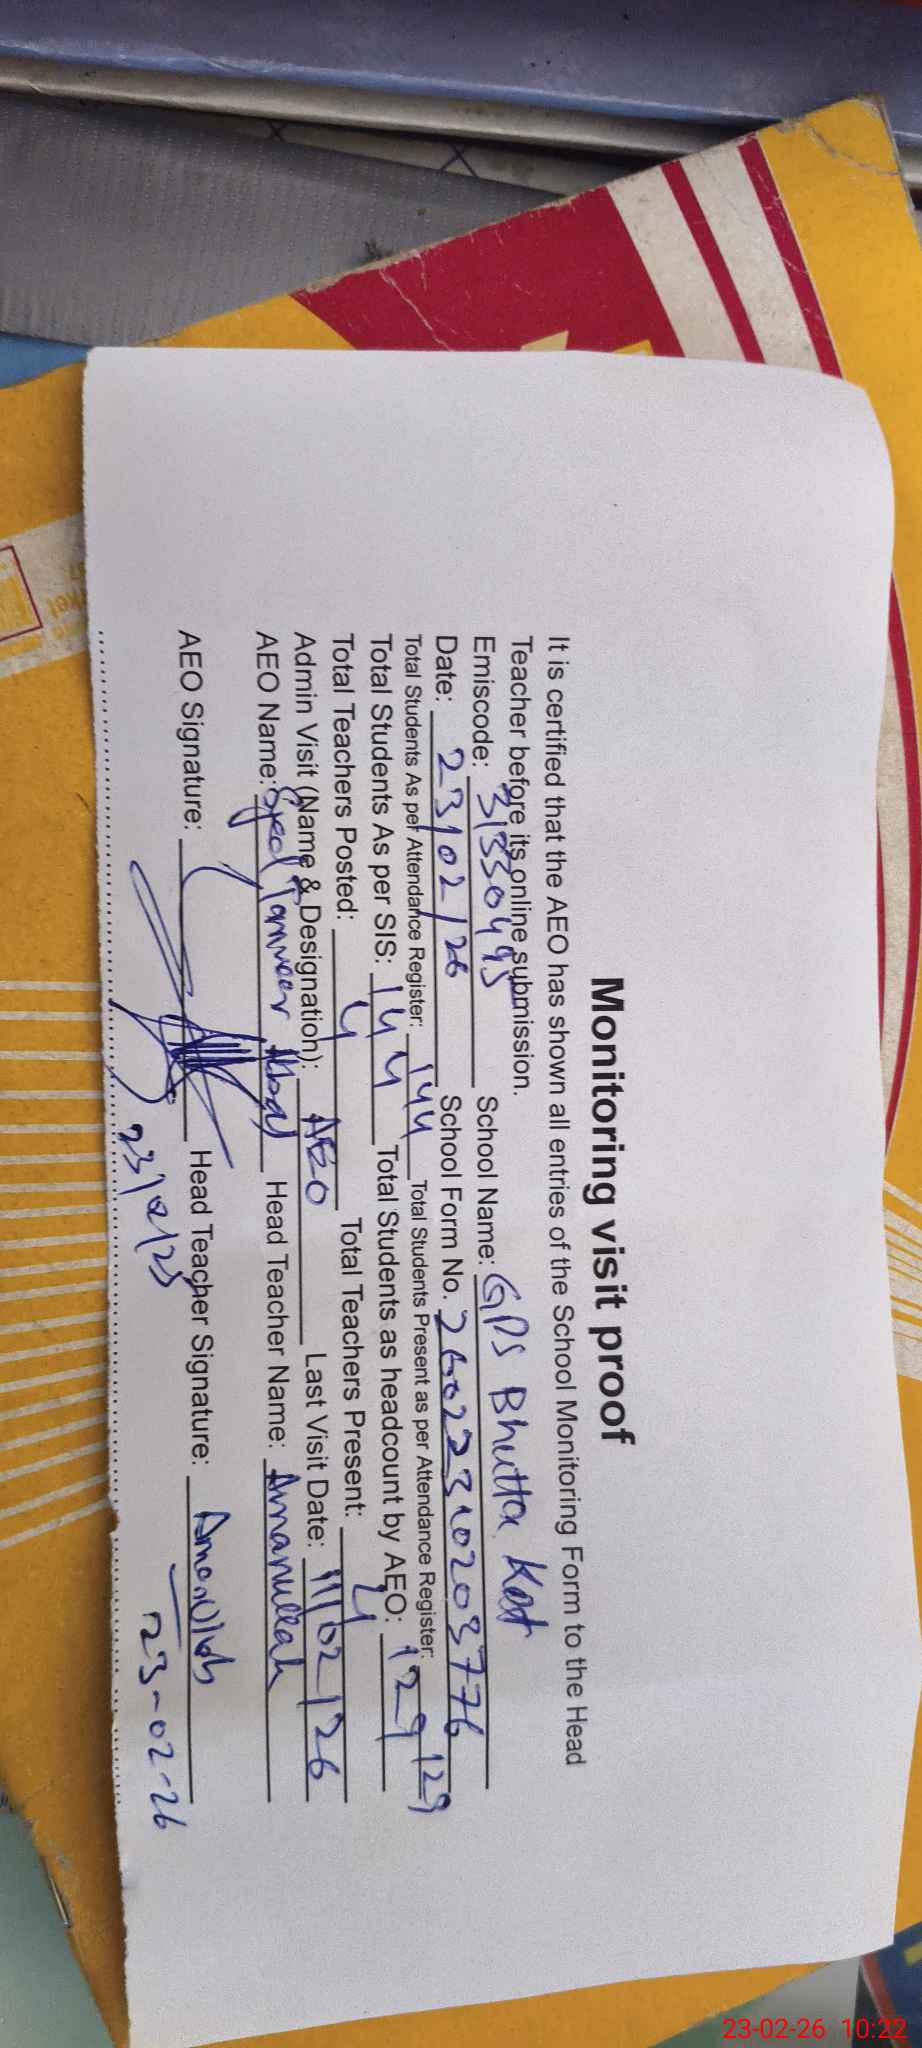 Monitoring visit proof
It is certified that the AEO has shown all entries of the School Monitoring Form to the Head
Teacher before its online submission.
Emiscode: 31330495 School Name: GPS Bhutta Kot
Date: 23/02/26 School Form No. 26022310203776
Total Students As per Attendance Register: 144 Total Students Present as per Attendance Register: 129
Total Students As per SIS: 144 Total Students as headcount by AEO: 129
Total Teachers Posted: 4 Total Teachers Present: 4
Admin Visit (Name & Designation): AEO Last Visit Date: 11/02/26
AEO Name: Syed Tanveer Abbas Head Teacher Name: Amanullah
AEO Signature: Head Teacher Signature: Amanullah
23-02-26
23-02-26 10:22